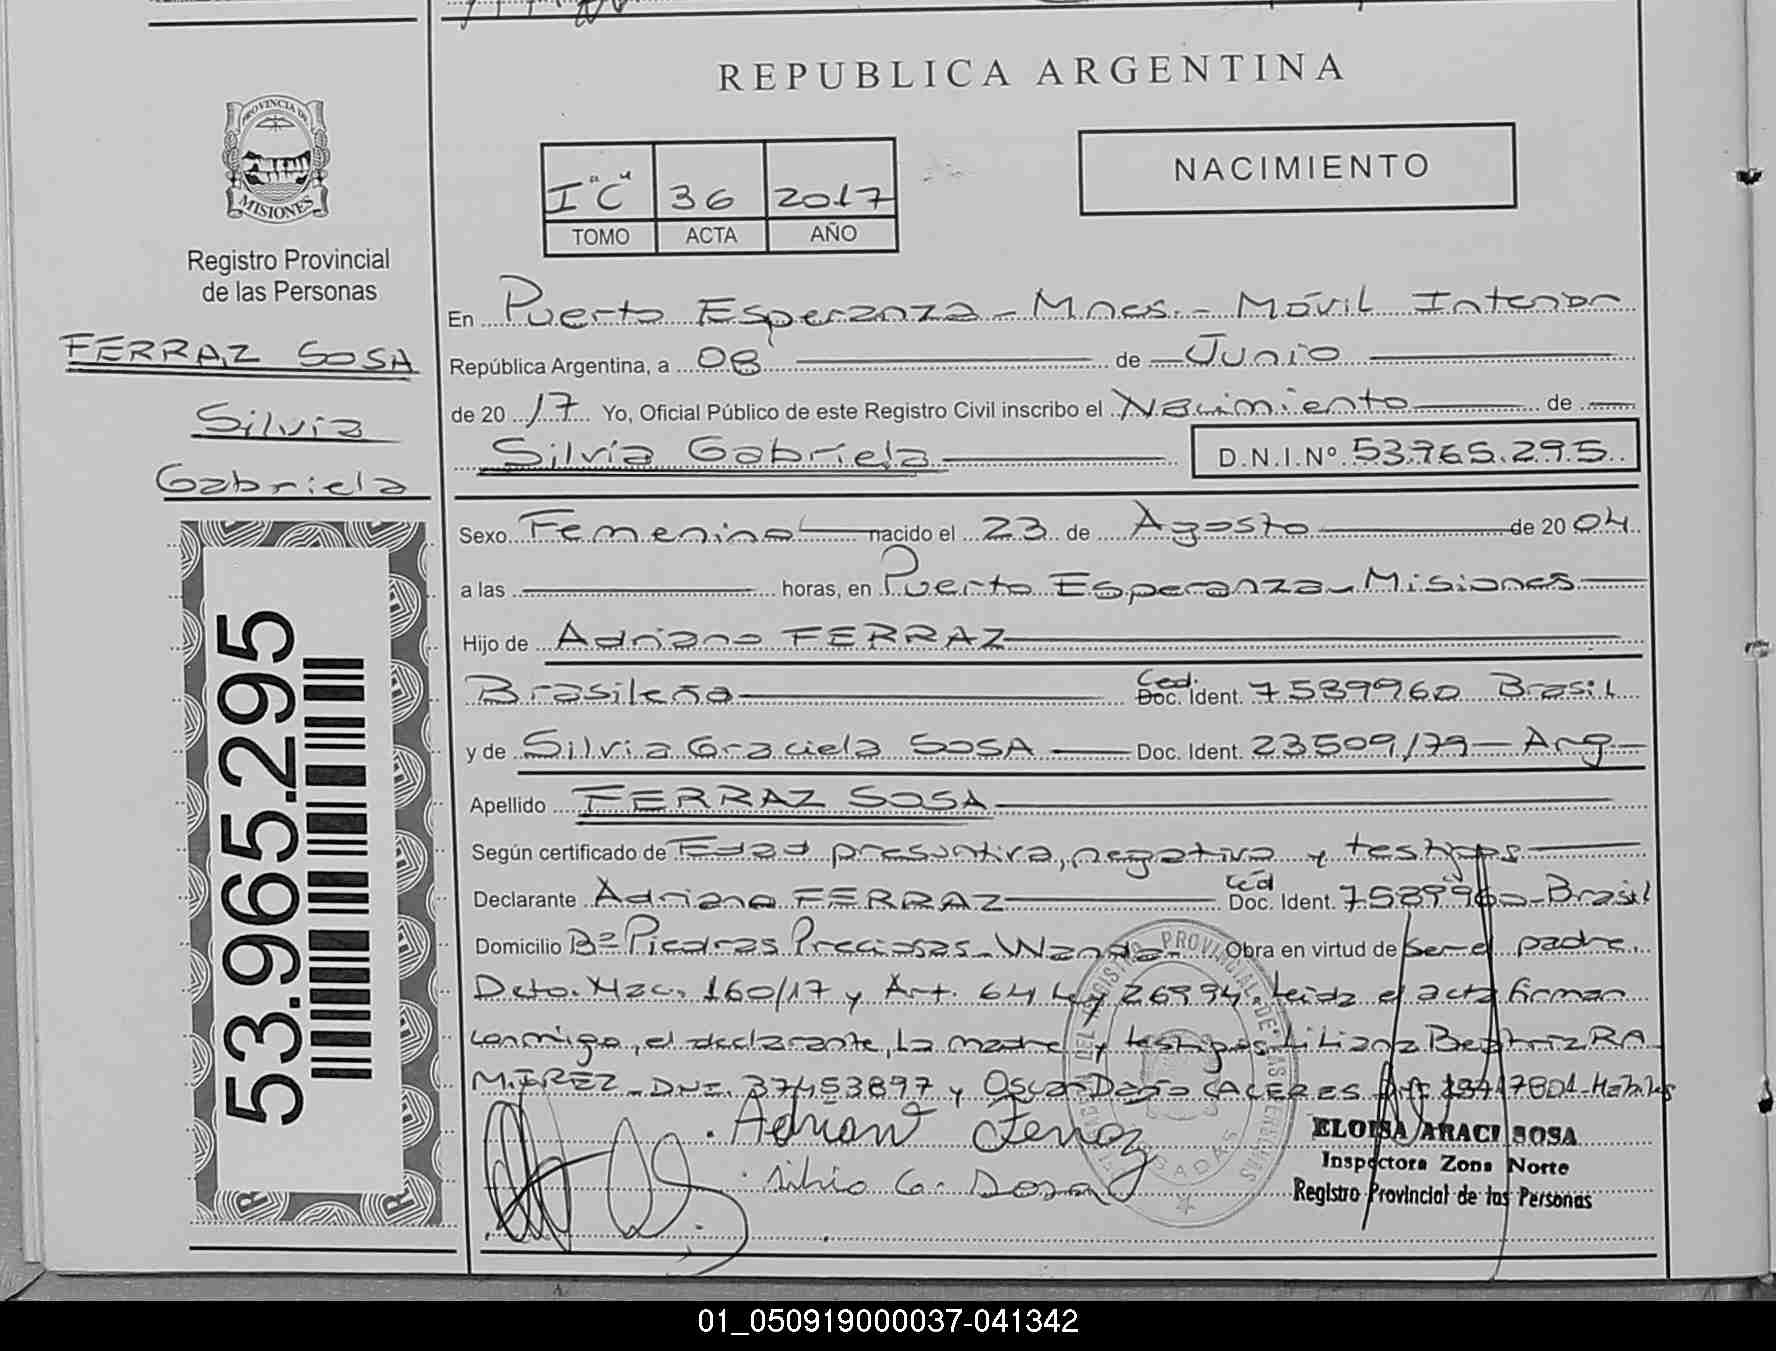 REPUBLICA ARGENTINA
PROVINCIA DE
MISIONES
Registro Provincial
de las Personas
FERRAZ SOSA
Silvia
Gabriela
53.965.295
I "C" 36 2017
TOMO ACTA AÑO
NACIMIENTO
En Puerto Esperanza - Mnes. - Móvil Interior
República Argentina, a 08 de Junio
de 20 17 Yo, Oficial Público de este Registro Civil inscribo el Nacimiento de
Silvia Gabriela D.N.I.Nº 53.965.295
Sexo Femenino nacido el 23 de Agosto de 20 04
a las horas, en Puerto Esperanza - Misiones
Hijo de Adriano FERRAZ
Brasileña Ced. Doc. Ident. 7589960 Brasil
y de Silvia Graciela SOSA Doc. Ident. 23509179 - Arg -
Apellido FERRAZ SOSA
Según certificado de Edad presuntiva, negativa y testigos
Declarante Adriano FERRAZ Ced Doc. Ident. 7589960 - Brasil
Domicilio Bº Piedras Preciosas - Wanda - Obra en virtud de ser el padre,
Dcto. Nac. 160/17 y Art. 64 Ley 26994. Leida el acta firman
conmigo, el declarante, la madre y testigos Liliana Beatriz RA
MIREZ - DNI. 37453897 y Oscar Dario CACERES
Adriano Ferraz
Silvia G. Sosa
ELOISA ARACI SOSA
Inspectora Zona Norte
Registro Provincial de las Personas
01_050919000037-041342